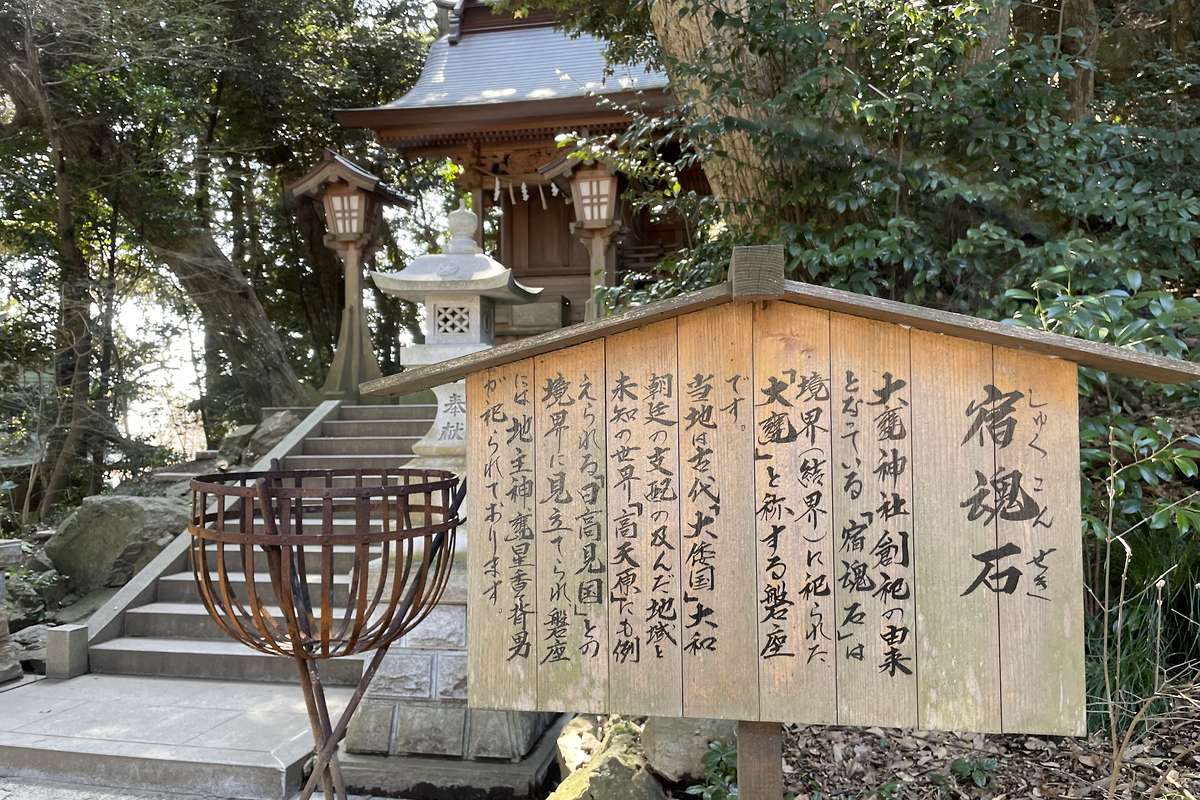 宿魂石
しゅくこんせき
大甕神社創祀の由来
となっている「宿魂石」は
境界(結界)に祀られた
「大甕」と称する磐座
です。
当地は古代「大倭国」大和
朝廷の支配の及んだ地域と
未知の世界「高天原」にも例
えられる「日高見国」との
境界に見立てられ磐座
には地主神、甕星香背男
が祀られております。
奉献